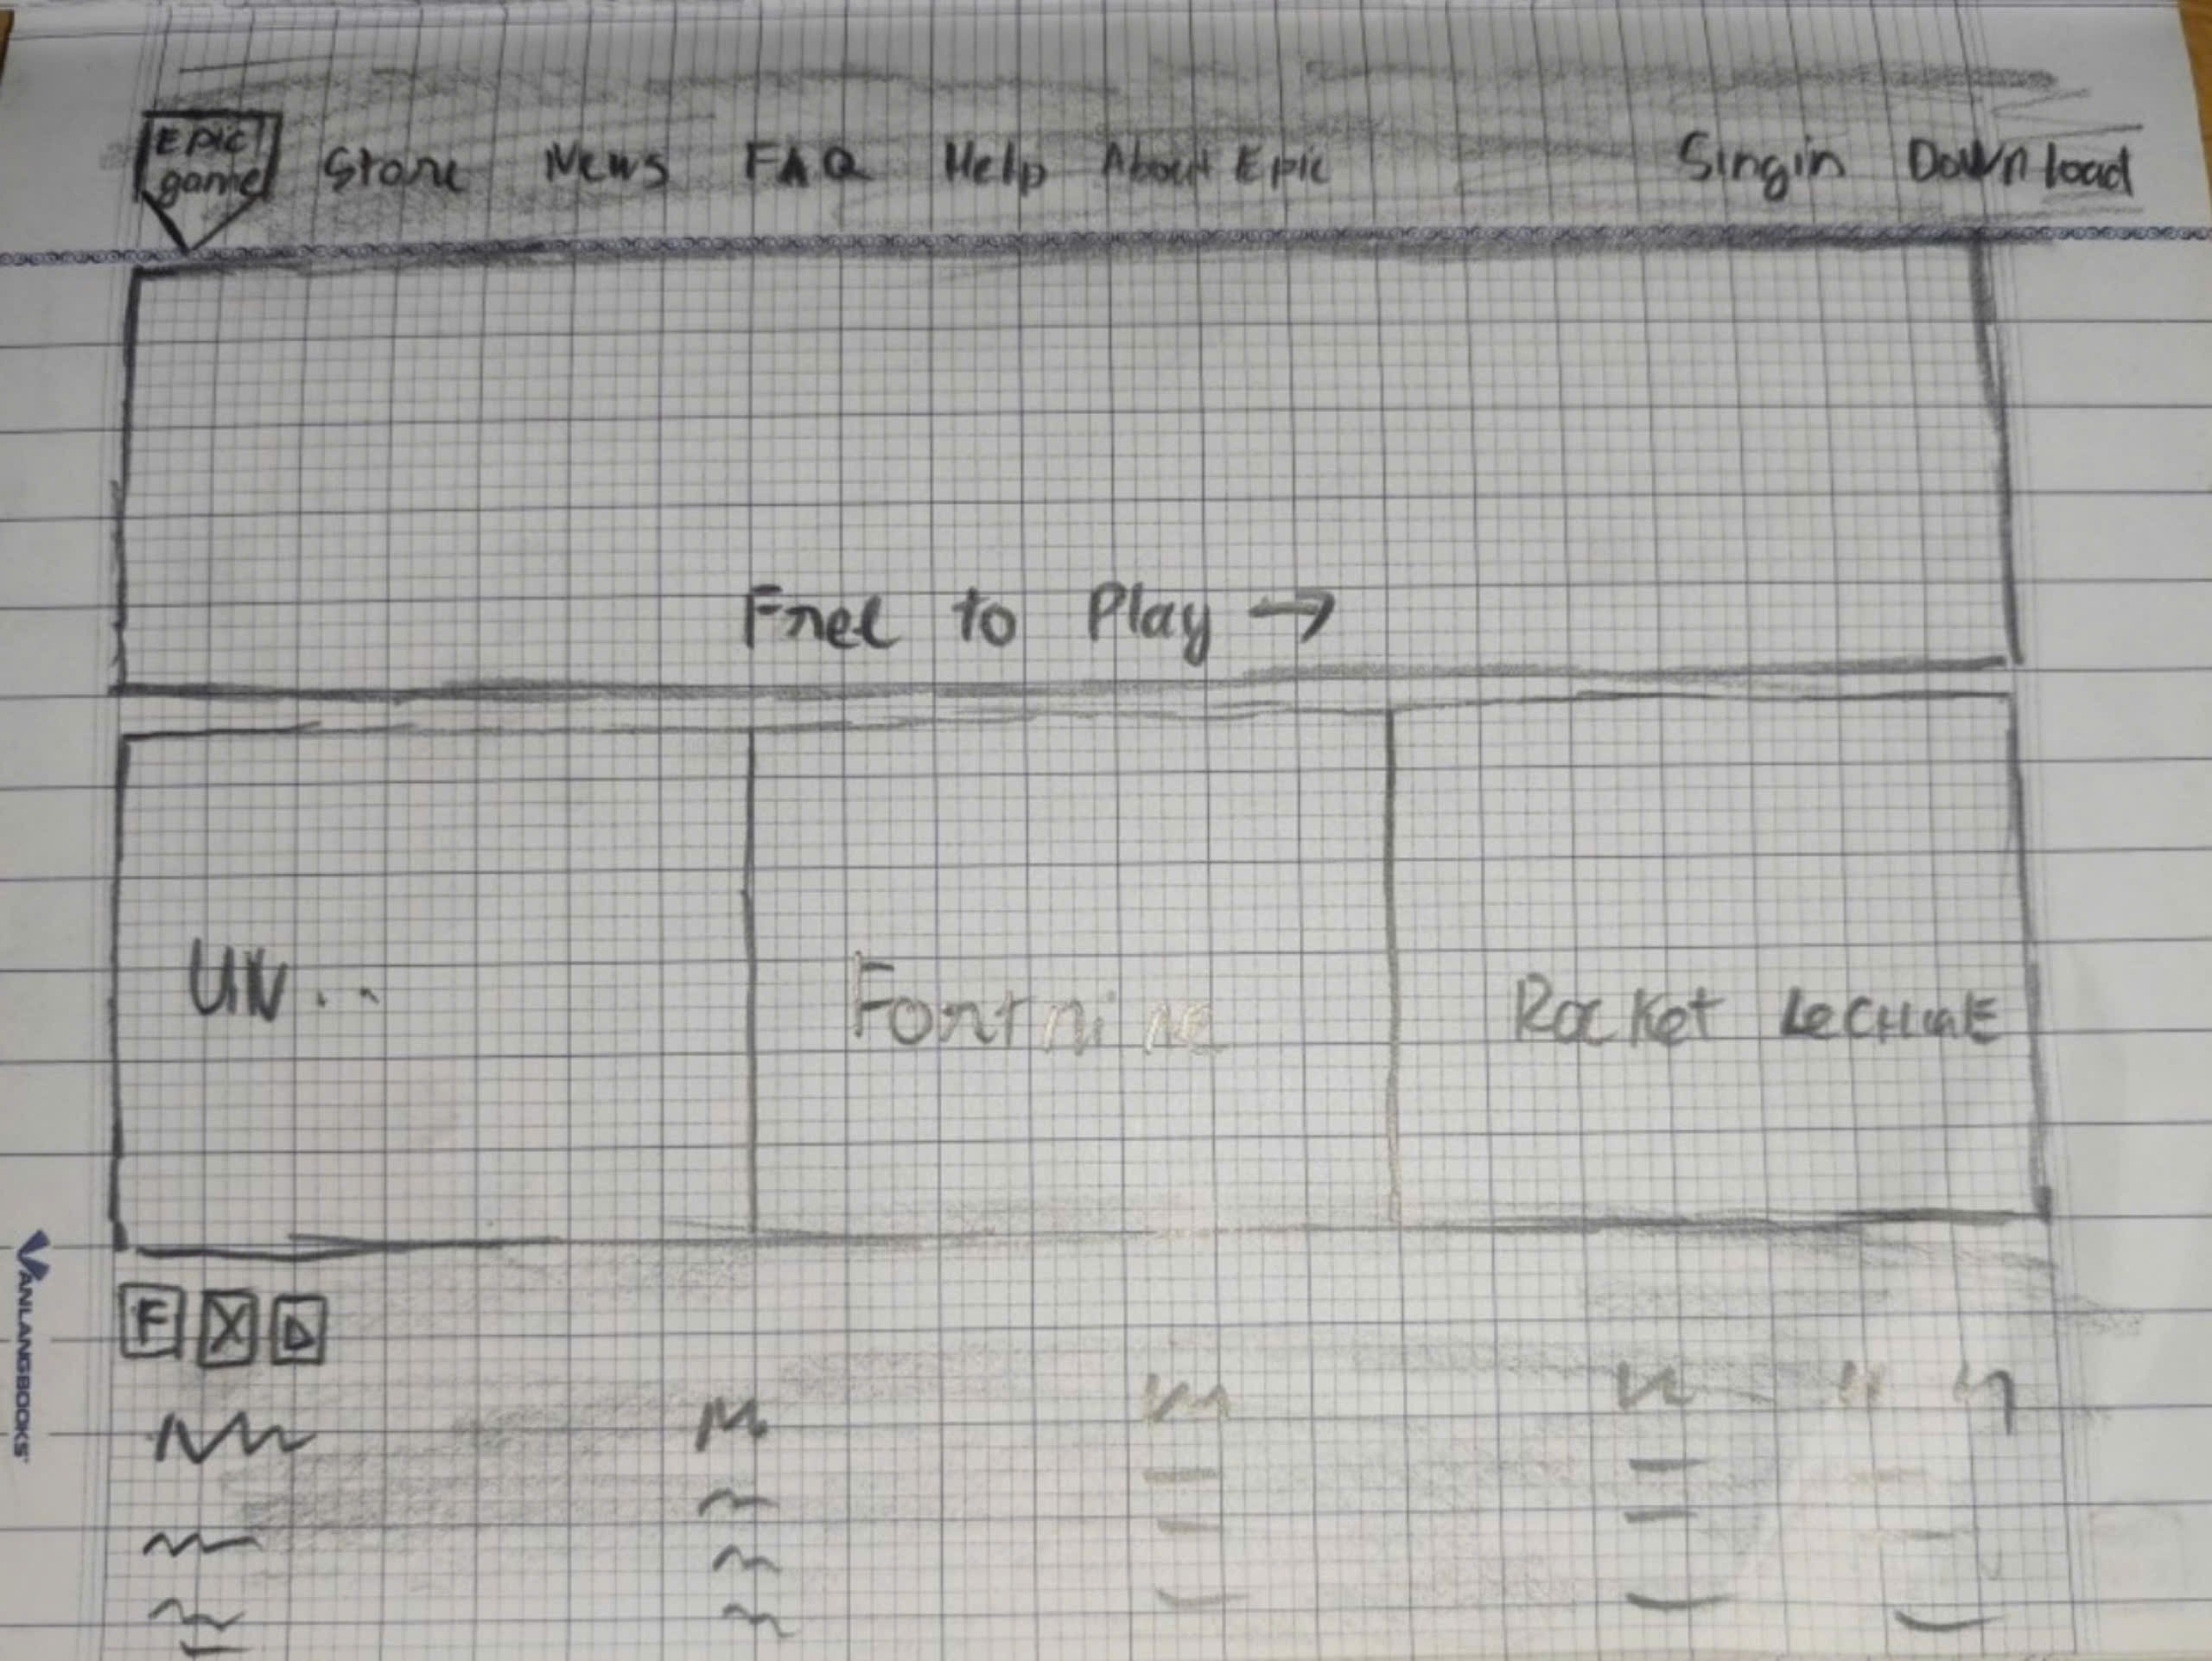 EPIC game Store News FAQ Help About Epic Singin Download
Free to Play →
UN... Fortnine Rocket
F X
VANLANGBOOKS